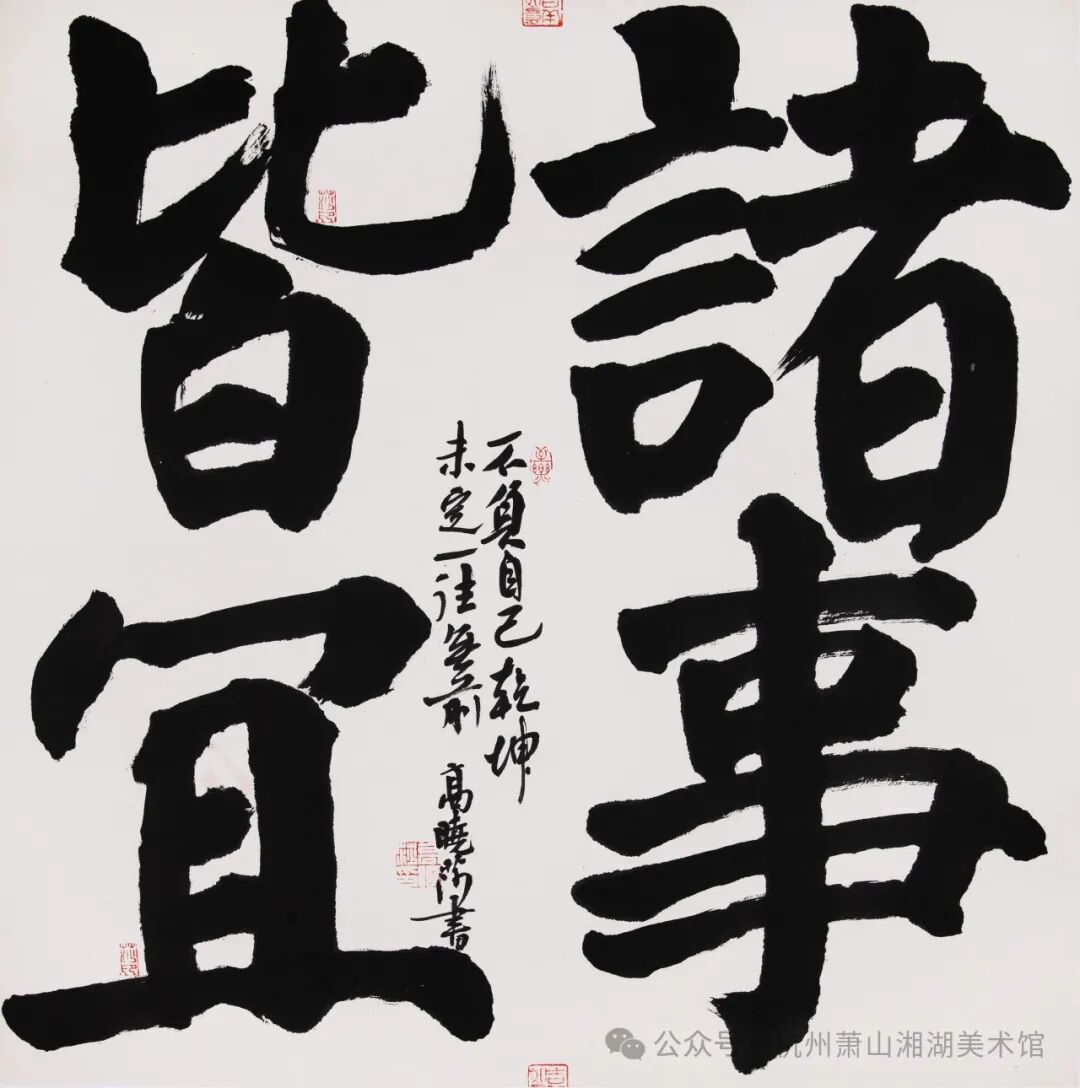 諸事
皆宜
不負自己乾坤
未定一往無前
高曉書
公众号 杭州萧山湘湖美术馆